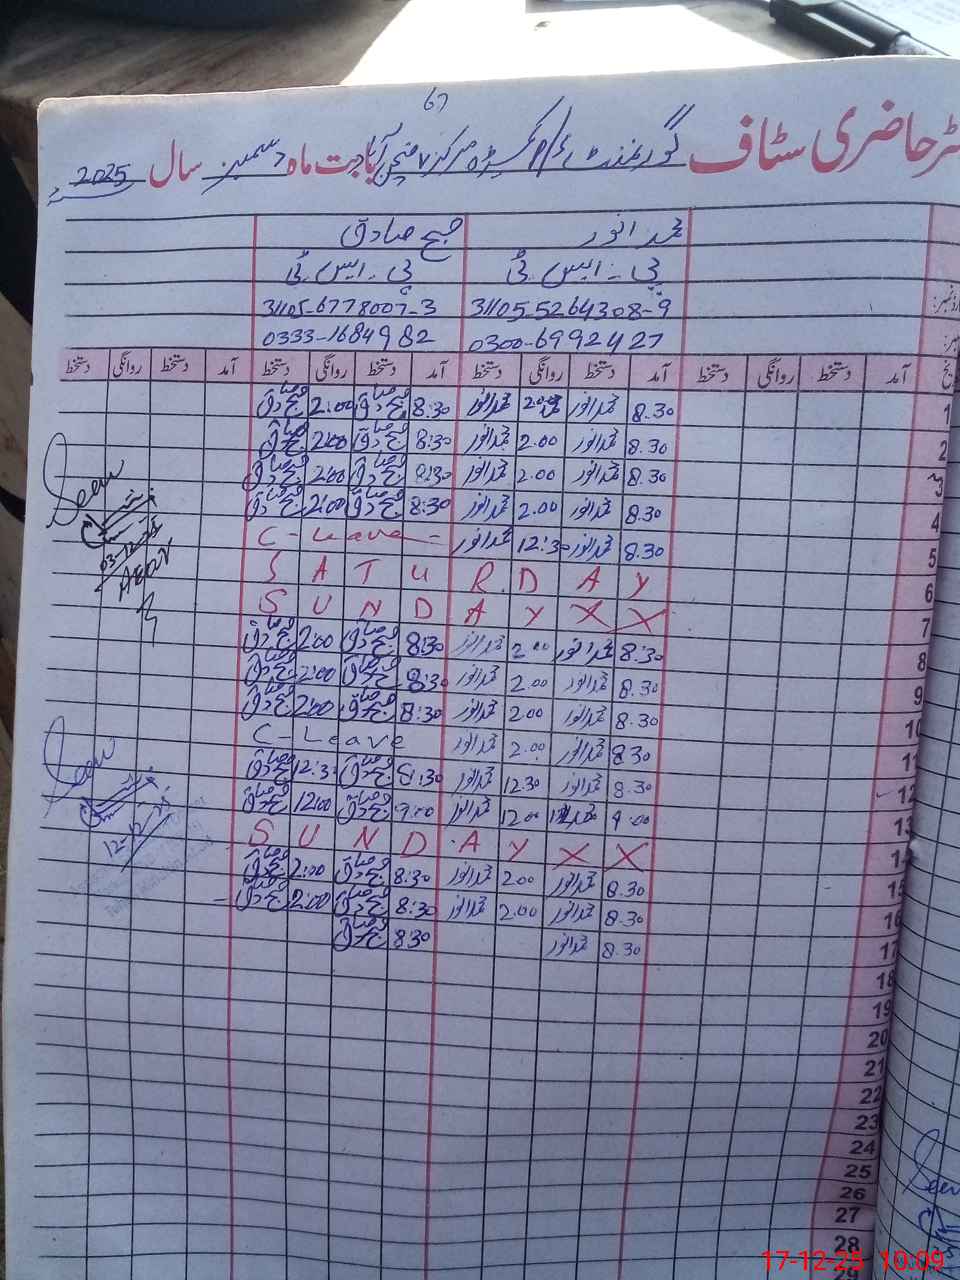 67
رجسٹر حاضری سٹاف گورنمنٹ مرکز آباد بابت ماہ دسمبر سال 2025
محمد انور صبح صادق
پی۔ ایس ٹی پی۔ ایس ٹی
31105-5264308-9 31105-6778007-3
0300-6992427 0333-1684982
آمد دستخط روانگی دستخط آمد دستخط روانگی دستخط آمد دستخط روانگی دستخط آمد دستخط روانگی دستخط
1 8.30 محمد انور 2.00 محمد انور 8:30 صبح صادق 2:00 صبح صادق
2 8.30 محمد انور 2.00 محمد انور 8:30 صبح صادق 2:00 صبح صادق
3 8.30 محمد انور 2.00 محمد انور 8:30 صبح صادق 2:00 صبح صادق
4 8.30 محمد انور 2.00 محمد انور 8:30 صبح صادق 2:00 صبح صادق
5 8.30 محمد انور 12:30 محمد انور C - Leave -
6 S A T U R D A Y
7 S U N D A Y X X
8 8.30 محمد انور 2.00 محمد انور 8:30 صبح صادق 2:00 صبح صادق
9 8.30 محمد انور 2.00 محمد انور 8:30 صبح صادق 2:00 صبح صادق
10 8.30 محمد انور 2.00 محمد انور 8:30 صبح صادق 2:00 صبح صادق
11 8.30 محمد انور 2.00 محمد انور C - Leave
12 8.30 محمد انور 12.30 محمد انور 8:30 صبح صادق 12:3 صبح صادق
13 9.00 محمد انور 12.00 محمد انور 9:00 صبح صادق 12:00 صبح صادق
14 S U N D A Y X X
15 8.30 محمد انور 2.00 محمد انور 8:30 صبح صادق 2:00 صبح صادق
16 8.30 محمد انور 2.00 محمد انور 8:30 صبح صادق 2:00 صبح صادق
17 8.30 محمد انور 8:30 صبح صادق
18
19
20
21
22
23
24
25
26
27
28
29
Seen
03-12-25
Seen
12-12-25
Seen
17-12-25 10:09